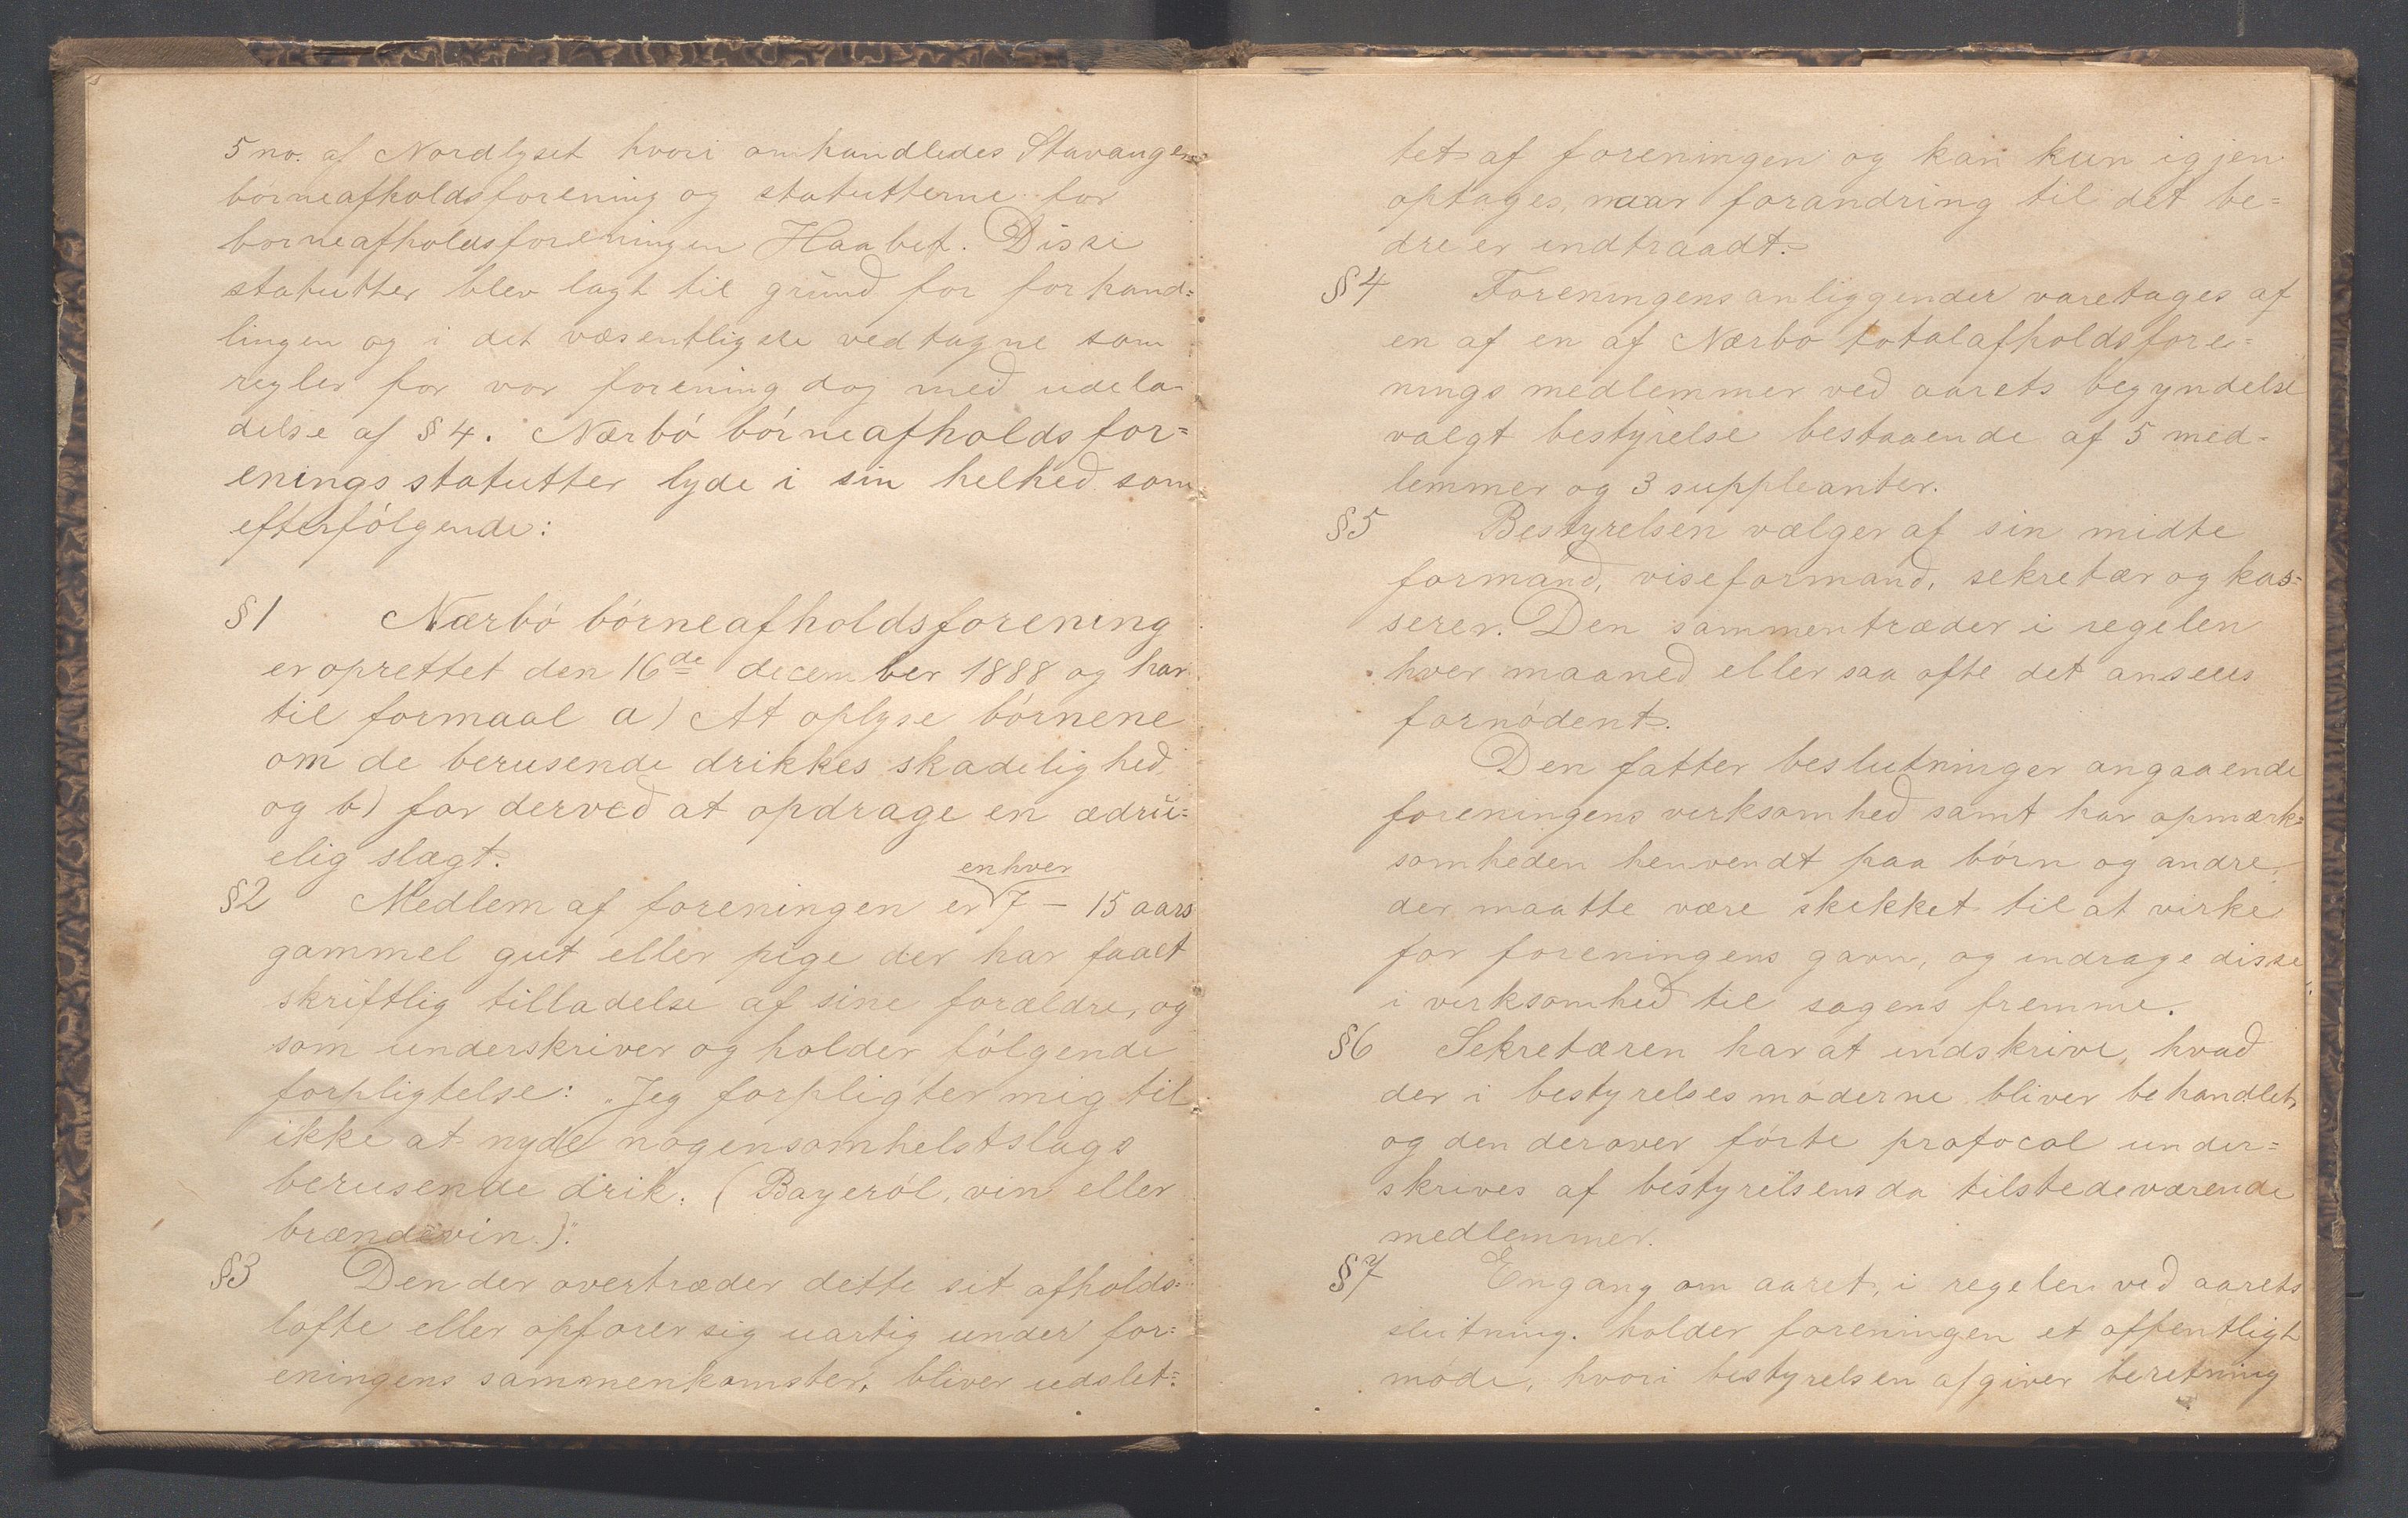 5 no. af Nordlyset hvori omhandledes Stavanger
børneafholdsforening og statutterne for
børneafholdsforeningen Haabet. Disse
statutter blev lagt til grund for forhand=
lingen og i det væsentligste vedtagne som
regler for vor forening dog med udela-
delse af § 4. Nærbó bórneafholdsfor=
enings statutter lyde i sin helhed som
efterfólgende:
§1 Nærbó bórneafholdsforening
er oprettet den 16de december 1888 og har
til formaal a) At oplyse bórnene
om de berusende drikkes skadelighed
og b) for derved at opdrage en ædru=
elig slægt.
enhver
§2 Medlem af foreningen er 7 – 15 aars
gammel gut eller pige der har faaet
skriftlig tilladelse af sine forældre, og
som underskriver og holder fólgende
forpligtelse: „Jeg forpligter mig til
ikke at nyde nogensomhelstslags
berusende drik. (Bayeról, vin eller
brændevin.)."
§3 Den der overtræder dette sit afholds=
lofte eller opforer sig uartig under for=
eningens sammenkomster, bliver udslet=
tet af foreningen og kan kun igjen
optages, naar forandring til det be=
dre er indtraadt.
§4 Foreningens anliggender varetages af
en af en af Nærbo totalafholdsfore=
nings medlemmer ved aarets begyndelse
valgt bestyrelse bestaaende af 5 med=
lemmer og 3 suppleanter.
§5 Bestyrelsen vælger af sin midte
formand, viseformand, sekretær og kas=
serer. Den sammentræder i regelen
hver maaned eller saa ofte det ansees
fornódent.
Den fatter beslutninger angaaende
foreningens virksomhed samt har opmærk=
somheden henvendt paa bórn og andre,
der maatte være skikket til at virke
for foreningens gavn, og indrage disse
i virksomhed til sagens fremme.
§6 Sekretæren har at indskrive, hvad
der i bestyrelsesmóderne bliver behandlet,
og den derover fórte protocol under=
skrives af bestyrelsens da tilstedeværende
medlemmer.
§7 Engang om aaret, i regelen ved aarets
slutning. holder foreningen et offentligt
móde, hvori bestyrelsen afgiver beretning